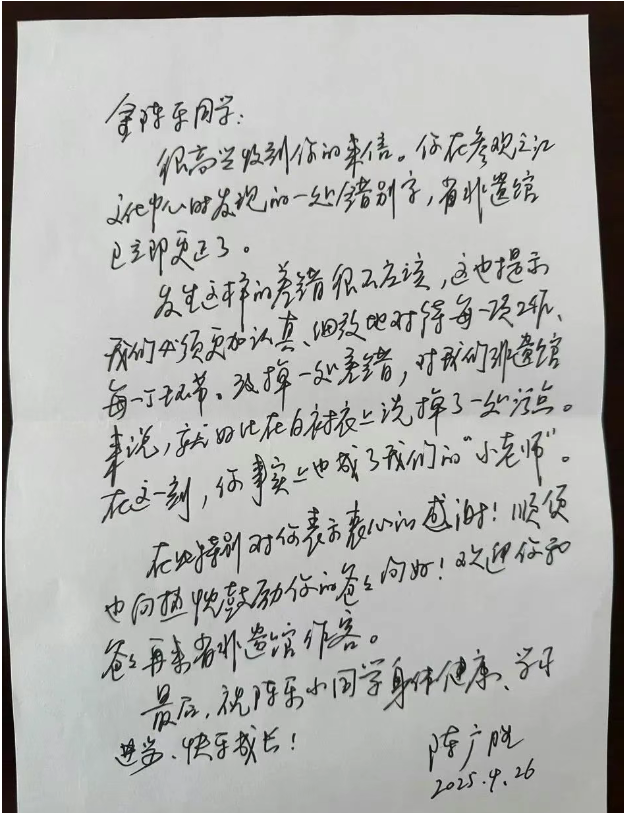 金陈乐同学：
很高兴收到你的来信。你在参观之江
文化中心时发现的一处错别字，省非遗馆
已立即更正了。
发生这样的差错很不应该，这也提示
我们必须更加认真、细致地对待每一项工作、
每一个环节。改掉一处差错，对我们非遗馆
来说，就好比在白衬衣上洗掉了一处污点。
在这一刻，你事实上也成了我们的“小老师”。
在此特别对你表示衷心的感谢！顺便
也向热忱鼓励你的爸爸问好！欢迎你和
爸爸再来省非遗馆作客。
最后，祝陈乐小同学身体健康、学习
进步、快乐成长！
陈广胜
2025.9.26